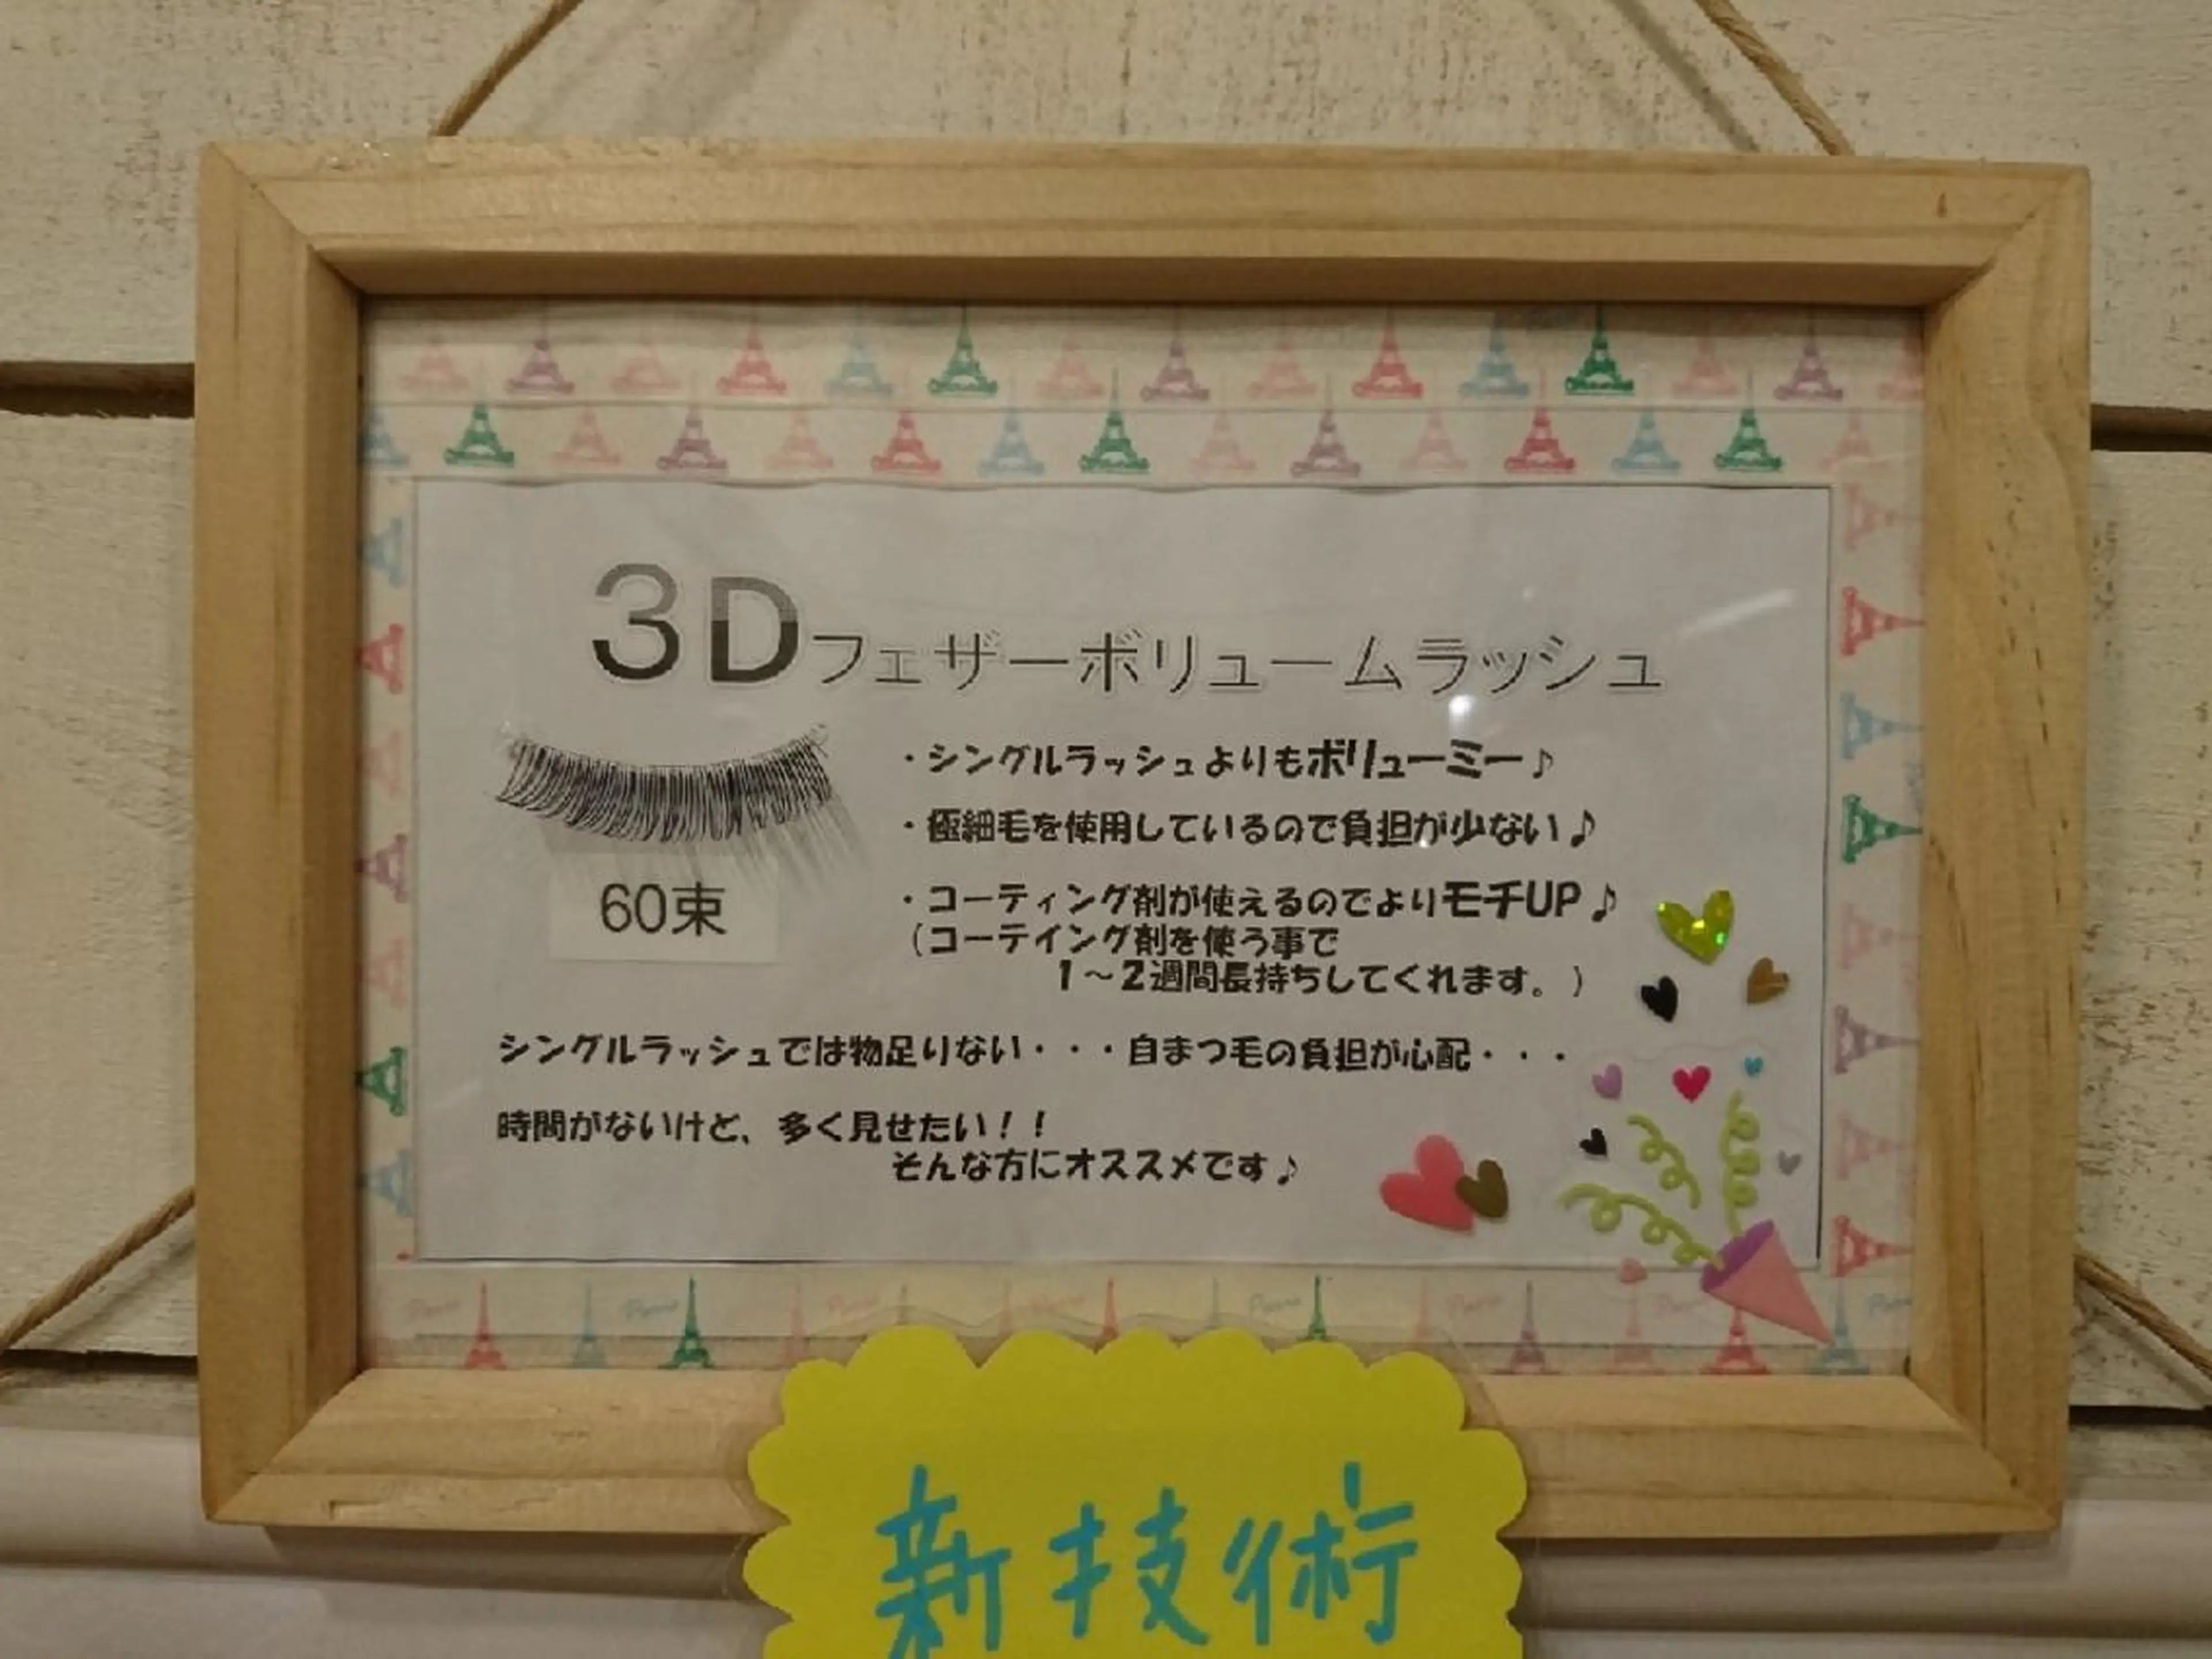 3Dフェザーボリュームラッシュ
・シングルラッシュよりもボリューミー♪
・極細毛を使用しているので負担が少ない♪
60束
・コーティング剤が使えるのでよりモチUP♪
（コーテイング剤を使う事で
1～2週間長持ちしてくれます。）
シングルラッシュでは物足りない・・・自まつ毛の負担が心配・・・
時間がないけど、多く見せたい！！
そんな方にオススメです♪
新技術